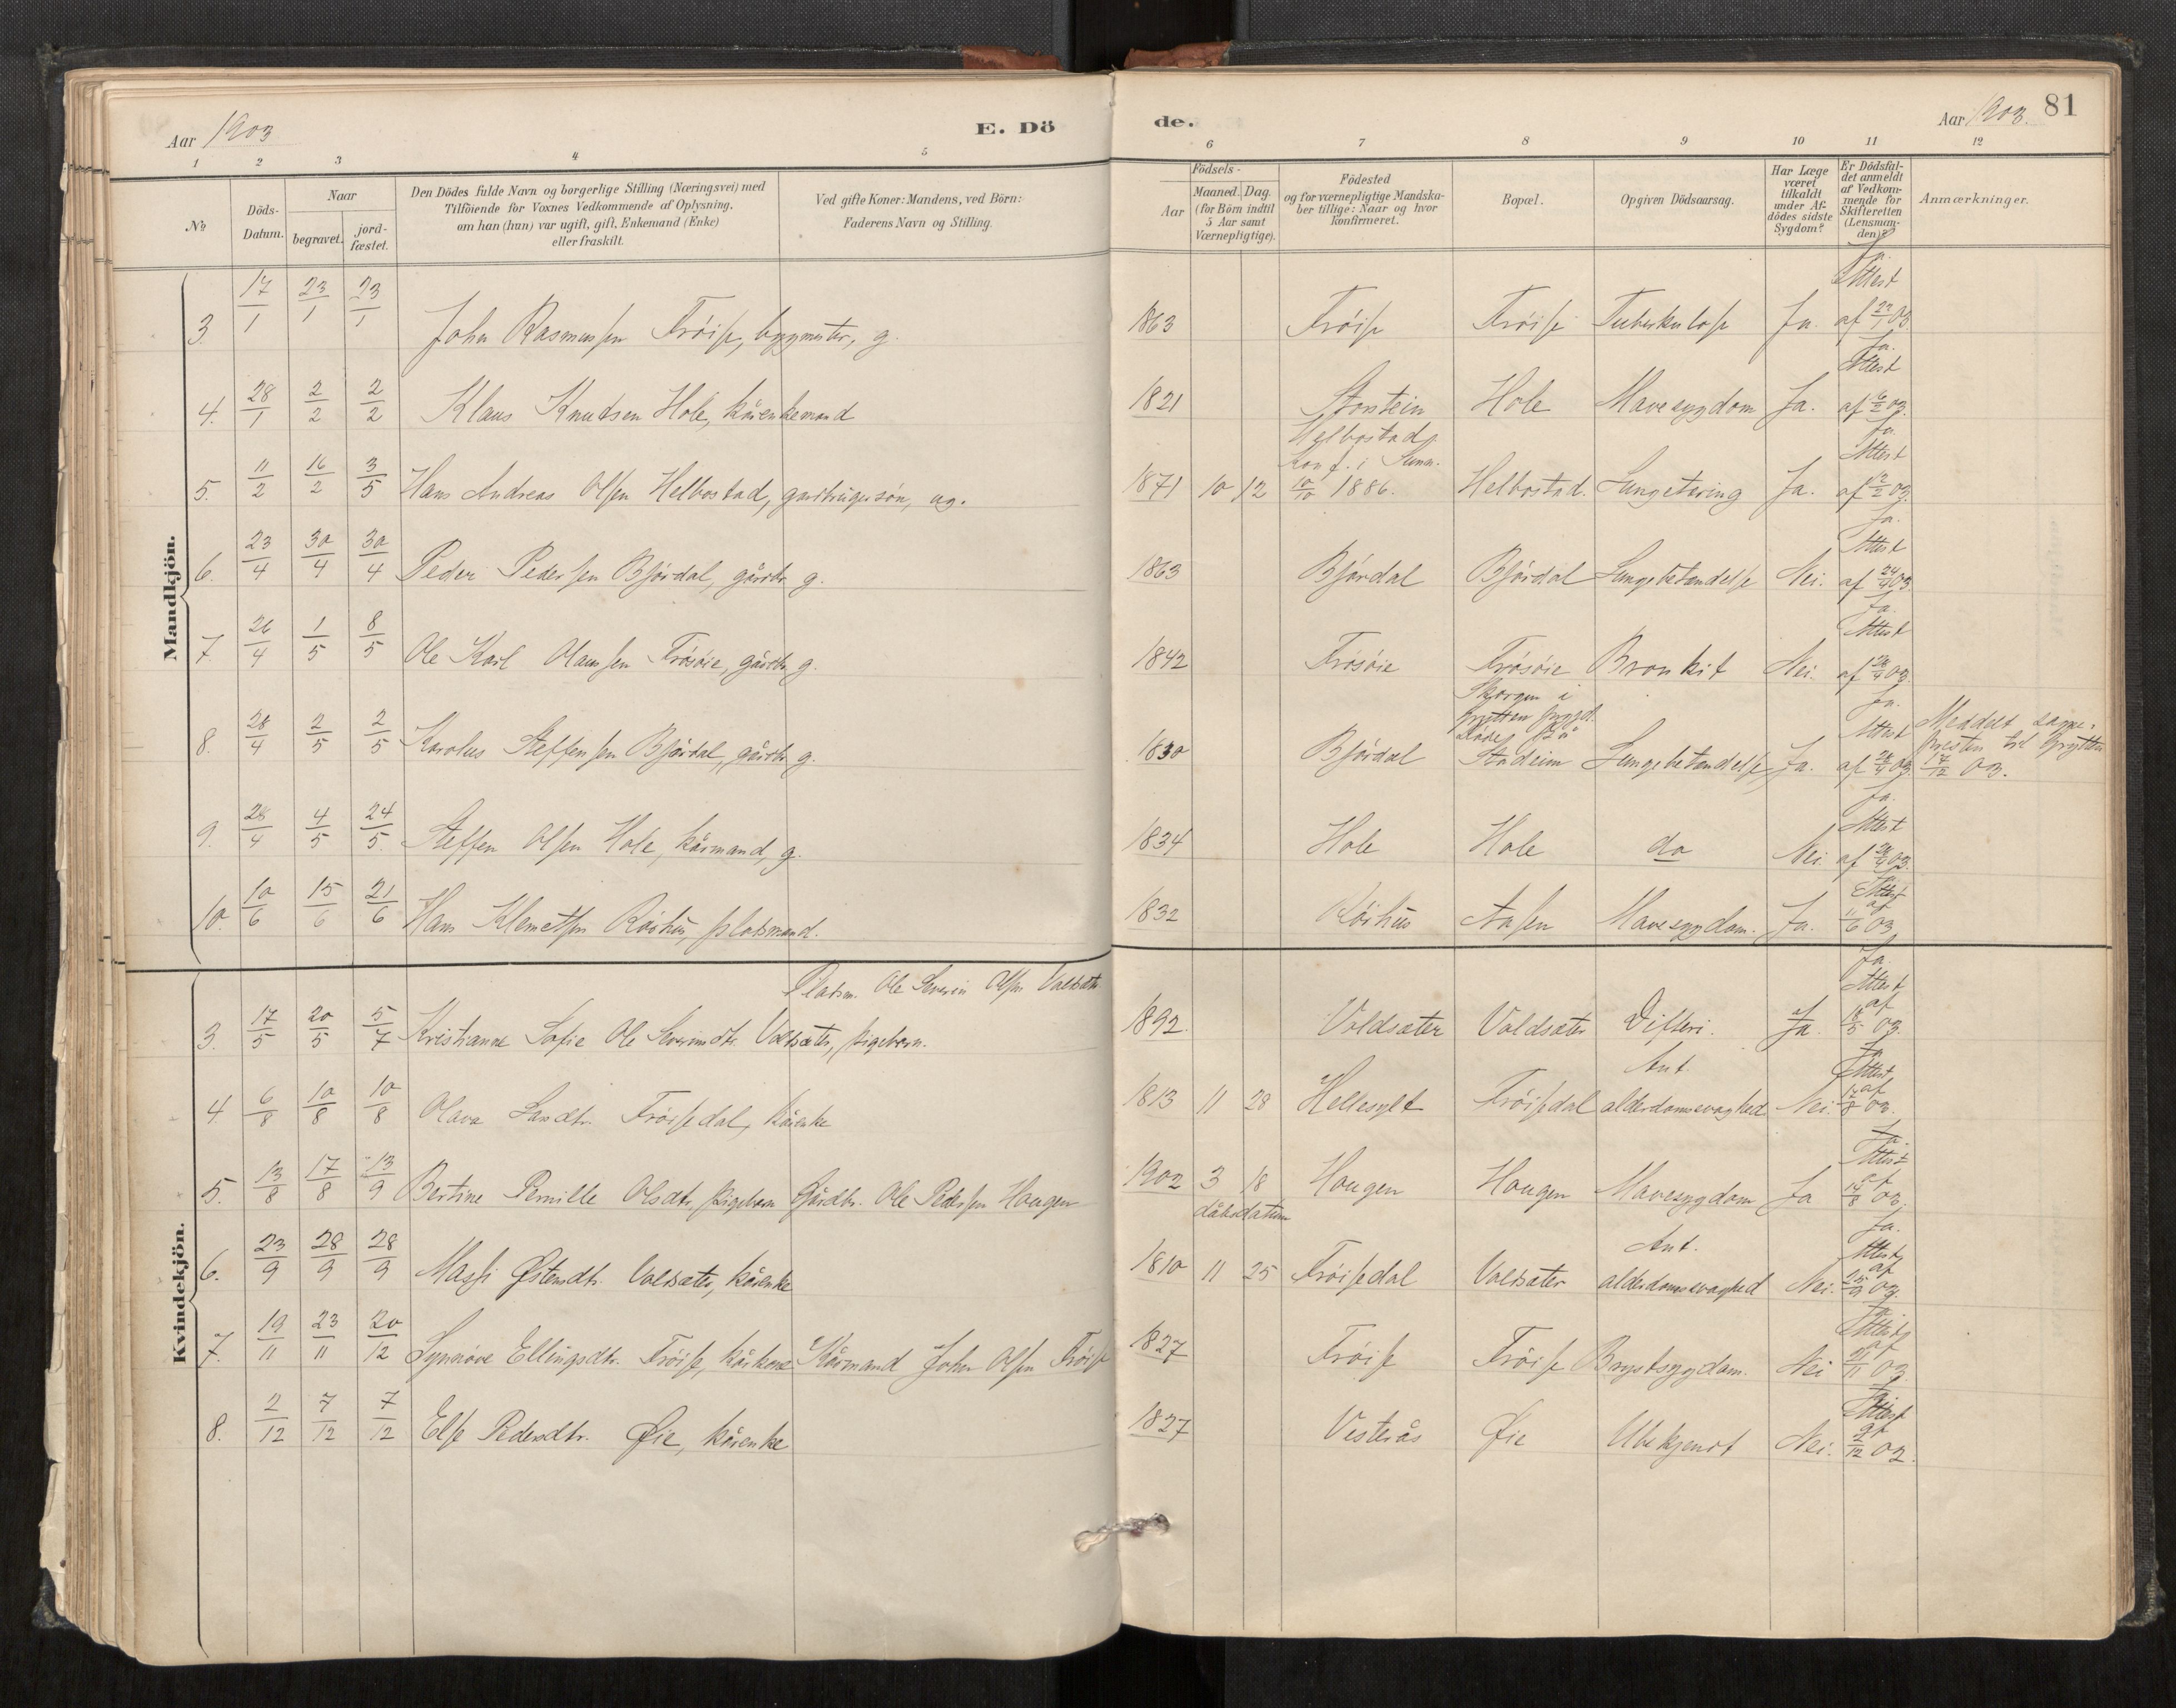 Aar 1903
E. Dö
de.
Aar 1903.
81
1 2 3 4 5 6 7 8 9 10 11 12
No.
Döds-Datum.
Naar
begravet.
jord-fæstet.
Den Dödes fulde Navn og borgerlige Stilling (Næringsvei) med
Tilföiende for Voxnes Vedkommende af Oplysning,
om han (hun) var ugift, gift, Enkemand (Enke)
eller fraskilt.
Ved gifte Koner: Mandens, ved Börn:
Faderens Navn og Stilling.
Födsels-
Aar
Maaned. Dag.
(for Börn indtil
5 Aar samt
Værnepligtige).
Födested
og for værnepligtige Mandska-
ber tillige: Naar og hvor
konfirmeret.
Bopæl.
Opgiven Dödsaarsag.
Har Læge
været
tilkaldt
under Af-
dödes sidste
Sygdom?
Er Dödsfal-
det anmeldt
af Vedkom-
mende for
Skifteretten
(Lensman-
den)?
Anmærkninger.
Mandkjön.
3. 17/1 23/1 23/1 John Rasmussen Fröise, bygmester, g. 1863 Fröise Fröise Tuberkulose Ja. Ja. Attest af 22/1 03.
4. 28/1 2/2 2/2 Klaus Knudsen Hole, kårenkemand 1821 Storstein Hole Mavesygdom Ja. Ja. Attest af 6/2 03.
5. 11/2 16/2 3/5 Hans Andreas Olsen Helbostad, gardbrugersön, ug. 1871 10 12 Helbostad. Konf. i Sunn. 10/10 1886. Helbostad. Lungetæring Ja. Ja. Attest af 12/2 03.
6. 23/4 30/4 30/4 Peder Pedersen Björdal, gårdbr. g. 1863 Björdal Björdal Lungebetændelse Nei. Ja. Attest af 24/4 03.
7. 26/4 1/5 8/5 Ole Karl Olaussen Frösöie, gårdbr. g. 1842 Frösöie Frösöie Bronkit Nei. Ja. Attest af 28/4 03.
8. 28/4 2/5 2/5 Karolus Steffensen Björdal, gårdbr. g. 1830 Björdal Skorgen i Grytten prgjd. Döde på Stadeim Lungebetændelse Ja. Ja. Attest af 28/4 03. Meddelt sogne-presten til Grytten 17/12 03.
9. 28/4 4/5 24/5 Steffen Olsen Hole, kårmand, g. 1834 Hole Hole do Nei Ja. Attest af 28/4 03.
10. 10/6 15/6 21/6 Hans Klemetsen Röshus, pladsmand. 1832 Röshus Aasen Mavesygdom. Ja. Ja. Attest af 11/6 03
Kvindekjön.
Pladsm. Ole Severin Olsen Valdsæter
3. 17/5 20/5 5/7 Kristianne Sofie Ole Severinsdtr. Valdsæter, pigebarn. 1892. Valdsæter Valdsæter Difteri. Ja. Ja. Attest af 18/5 03.
4. 6/8 10/8 10/8 Olava Larsdtr. Fröisedal, kårenke 1813 11 28 Hellesylt Fröisedal Ant. alderdomssvaghed Nei. Ja. Attest af 12/8 03.
5. 13/8 17/8 13/9 Bertine Pernille Olsdtr. pigebarn Gårdbr. Ole Pedersen Haugen 1902 3 18 dåbsdatum Haugen Haugen Mavesygdom Ja Ja. Attest af 15/8 03.
6. 23/9 28/9 28/9 Massi Östensdtr. Valdsæter, kårenke 1810 11 25 Fröisedal Valdsæter Ant. alderdomssvaghed Nei. Ja. Attest af 25/9 03.
7. 19/11 23/11 20/12 Synnöve Ellingsdtr. Fröise, kårkone Kårmand John Olsen Fröise 1827 Fröise Fröise Brystsygdom. Nei Ja. Attest af 21/11 03.
8. 2/12 7/12 7/12 Else Pedersdtr. Øie, kårenke 1827 Vesterås Øie Ubekjendt Nei. Ja. Attest af 2/12 03.